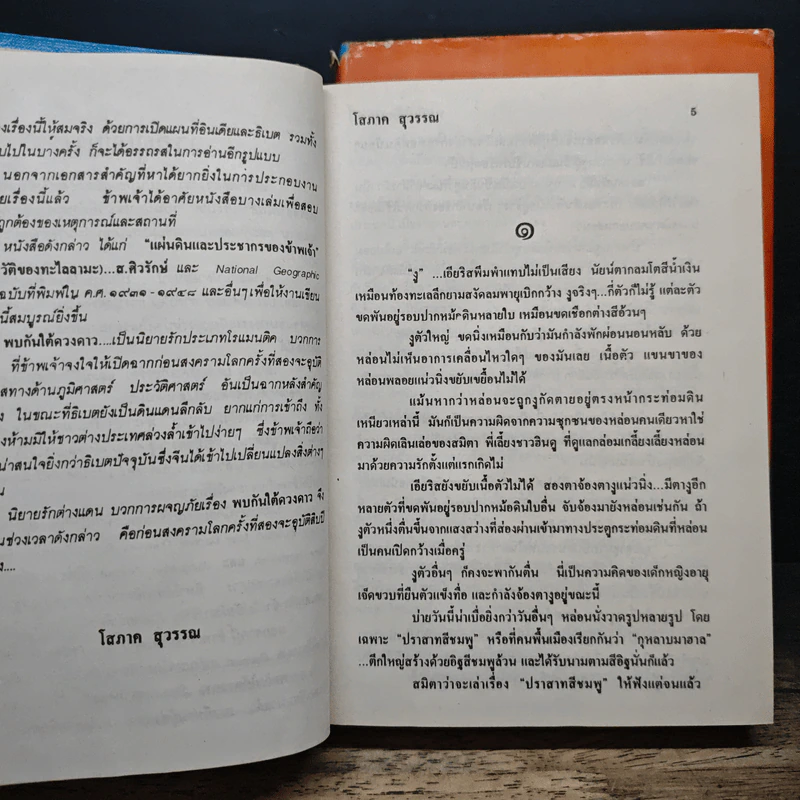 งเรื่องนี้ให้สมจริง ด้วยการเปิดแผนที่อินเดียและธิเบต รวมทั้ง
บไปในบางครั้ง ก็จะได้อรรถรสในการอ่านอีกรูปแบบ
นอกจากเอกสารสำคัญที่หาได้ยากยิ่งในการประกอบงาน
ยเรื่องนี้แล้ว ข้าพเจ้าได้อาศัยหนังสือบางเล่มเพื่อสอบ
ถูกต้องของเหตุการณ์และสถานที่
หนังสือดังกล่าว ได้แก่ "แผ่นดินและประชากรของข้าพเจ้า"
วัติของทะไลลามะ)...ส.ศิวรักษ์ และ National Geographic
ฉบับที่พิมพ์ใน ค.ศ.๑๙๓๑-๑๙๔๘ และอื่นๆเพื่อให้งานเขียน
นี้สมบูรณ์ยิ่งขึ้น
พบกันใต้ดวงดาว....เป็นนิยายรักประเภทโรแมนติค บวกการ
ที่ข้าพเจ้าจงใจให้เปิดฉากก่อนสงครามโลกครั้งที่สองจะอุบัติ
สทางด้านภูมิศาสตร์ ประวัติศาสตร์ อันเป็นฉากหลังสำคัญ
ง ในขณะที่ธิเบตยังเป็นดินแดนลึกลับ ยากแก่การเข้าถึง ทั้ง
งห้ามมิให้ชาวต่างประเทศล่วงล้ำเข้าไปง่ายๆ ซึ่งข้าพเจ้าถือว่า
น่าสนใจยิ่งกว่าธิเบตปัจจุบันซึ่งจีนได้เข้าไปเปลี่ยนแปลงสิ่งต่างๆ
น
นิยายรักต่างแดน บวกการผจญภัยเรื่อง พบกันใต้ดวงดาว จึง
นช่วงเวลาดังกล่าว คือก่อนสงครามโลกครั้งที่สองจะอุบัติสิบปี
ง....
โสภาค สุวรรณ
โสภาค สุวรรณ 5
๑
"งู" ...เอียริสพึมพำแทบไม่เป็นเสียง นัยน์ตากลมโตสีน้ำเงิน
เหมือนท้องทะเลลึกยามสงัดลมพายุเบิกกว้าง งูจริงๆ...กี่ตัวก็ไม่รู้ แต่ละตัว
ขดพันอยู่รอบปากหม้อดินหลายใบ เหมือนขดเชือกต่างสีอ้วนๆ
งูตัวใหญ่ ขดนิ่งเหมือนกับว่ามันกำลังพักผ่อนนอนหลับ ด้วย
หล่อนไม่เห็นอาการเคลื่อนไหวใดๆ ของมันเลย เนื้อตัว แขนขาของ
หล่อนพลอยแน่วนิ่งขยับเขยื้อนไม่ได้
แม้นหากว่าหล่อนจะถูกงูกัดตายอยู่ตรงหน้ากระท่อมดิน
เหนียวเหล่านี้ มันก็เป็นความผิดจากความซุกซนของหล่อนคนเดียวหาใช่
ความผิดเลินเล่อของสมิตา พี่เลี้ยงชาวฮินดู ที่ดูแลกล่อมเกลี้ยงเลี้ยงหล่อน
มาด้วยความรักตั้งแต่แรกเกิดไม่
เอียริสยังขยับเนื้อตัวไม่ได้ สองตาจ้องตางูแน่วนิ่ง...มีตางูอีก
หลายตัวที่ขดพันอยู่รอบปากหม้อดินใบอื่น จับจ้องมายังหล่อนเช่นกัน ถ้า
งูตัวหนึ่งตื่นขึ้นจากแสงสว่างที่ส่องผ่านเข้ามาทางประตูกระท่อมดินที่หล่อน
เป็นคนเปิดกว้างเมื่อครู่
งูตัวอื่นๆ ก็คงจะพากันตื่น นี่เป็นความคิดของเด็กหญิงอายุ
เจ็ดขวบที่ยืนตัวแข็งทื่อ และกำลังจ้องตางูอยู่ขณะนี้
บ่ายวันนี้น่าเบื่อยิ่งกว่าวันอื่นๆ หล่อนนั่งวาดรูปหลายรูป โดย
เฉพาะ "ปราสาทสีชมพู" หรือที่คนพื้นเมืองเรียกกันว่า "กุหลาบมาฮาล"
...ตึกใหญ่สร้างด้วยอิฐสีชมพูล้วน และได้รับนามตามสีอิฐนั่นก็แล้ว
สมิตาว่าจะเล่าเรื่อง "ปราสาทสีชมพู" ให้ฟังแต่จนแล้ว